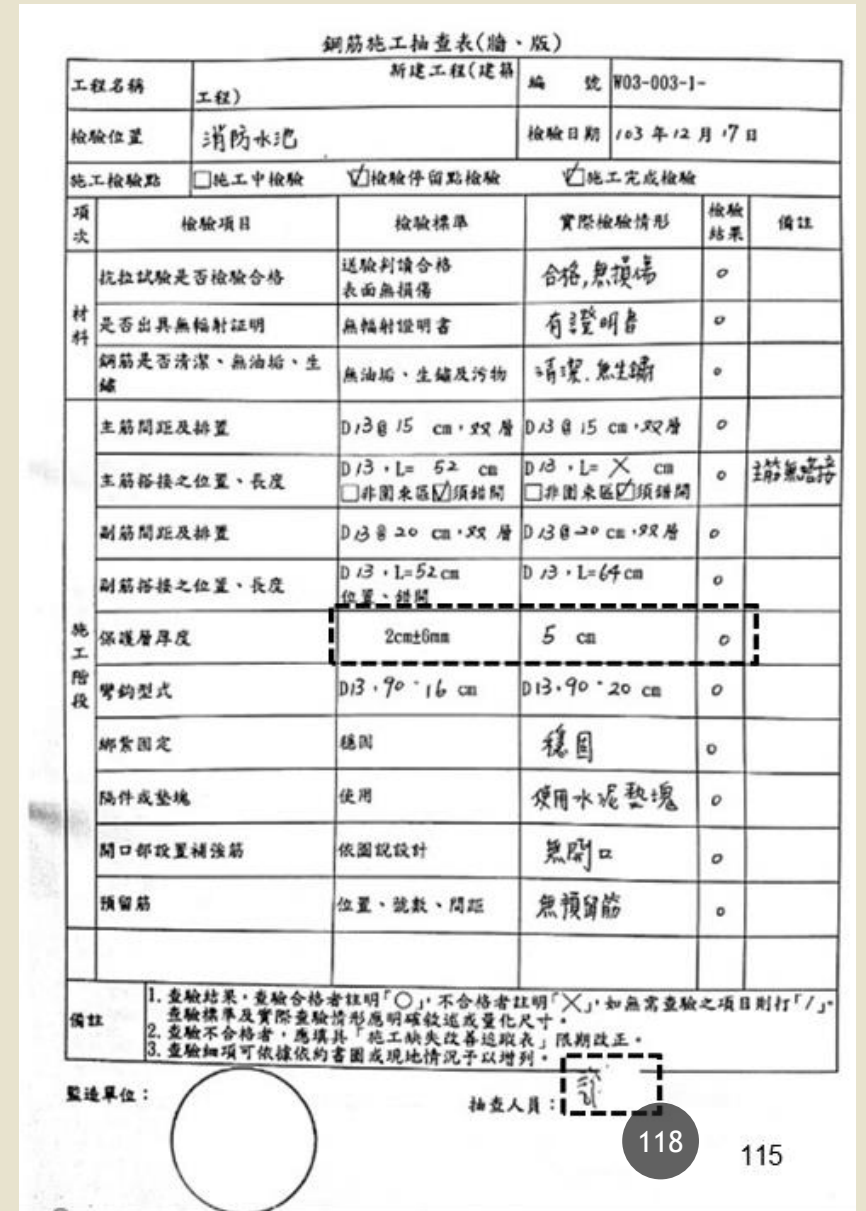 鋼筋施工抽查表(牆、版)
工程名稱 新建工程(建築工程) 編 號 W03-003-1-
檢驗位置 消防水池 檢驗日期 103 年 12 月 17 日
施工檢驗點 □施工中檢驗 ☑檢驗停留點檢驗 ☑施工完成檢驗
項次 檢驗項目 檢驗標準 實際檢驗情形 檢驗結果 備註
材料
抗拉試驗是否檢驗合格 送驗判讀合格 表面無損傷 合格,無損傷 o
是否出具無輻射証明 無輻射證明書 有證明書 o
鋼筋是否清潔、無油垢、生鏽 無油垢、生鏽及污物 清潔.無生鏽 o
施工階段
主筋間距及排置 D13@15 cm,双層 D13@15 cm,双層 o
主筋搭接之位置、長度 D13,L= 52 cm □非圍束區☑須錯開 D13,L= X cm □非圍束區☑須錯開 o 主筋無搭接
副筋間距及排置 D13@20 cm,双層 D13@20 cm,双層 o
副筋搭接之位置、長度 D13,L=52cm 位置、錯開 D13,L=64cm o
保護層厚度 2cm±6mm 5 cm o
彎鉤型式 D13,90°16 cm D13,90°20 cm o
綁紮固定 穩固 穩固 o
隔件或墊塊 使用 使用水泥墊塊 o
開口部設置補強筋 依圖說設計 無開口 o
預留筋 位置、號數、間距 無預留筋 o
備註
1. 查驗結果,查驗合格者註明「○」,不合格者註明「╳」,如無需查驗之項目則打「/」。
查驗標準及實際查驗情形應明確敘述或量化尺寸。
2. 查驗不合格者,應填具「施工缺失改善追蹤表」限期改正。
3. 查驗細項可依據依約書圖或現地情況予以增列。
監造單位: 抽查人員:
118
115